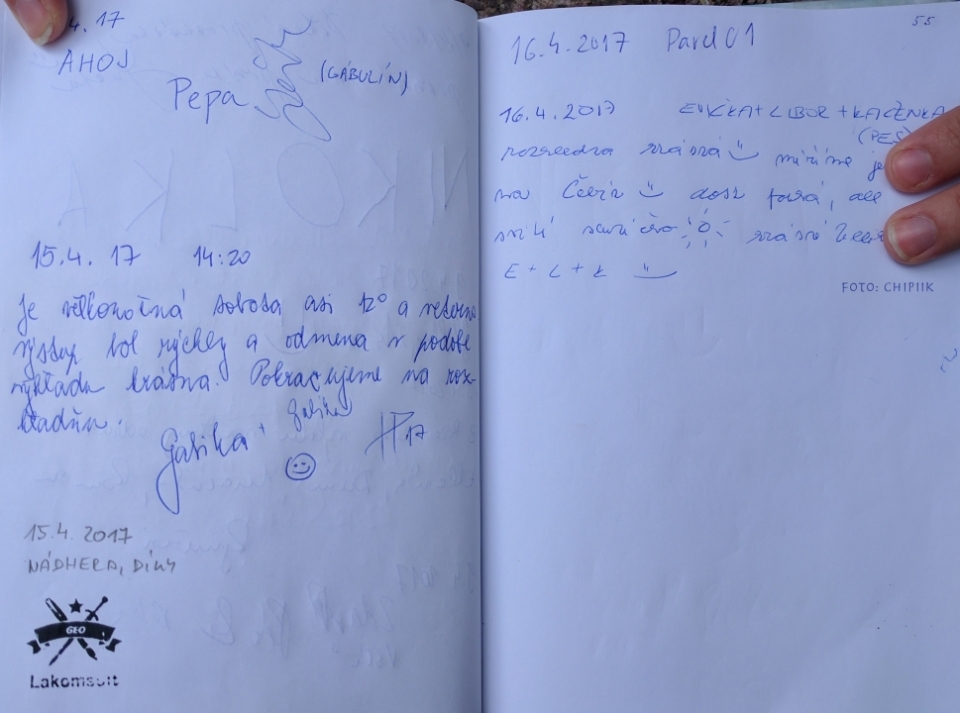 4. 17
AHOJ
Pepa (GABULÍN)
15.4. 17 14:20
Je velkonočná sobota asi 12° a
výstup bol rýchly a odmena v podobe
výhľadu krásna. Pokračujeme na roz-
hladňu.
Gabika +
17
15.4. 2017
NÁDHERA, DÍKY
GEO
Lakomsoft
55
16.4.2017 Pavel01
16.4.2017 + LIBOR + KAČENKA
(PES)
rozhledna krásná míříme
na dost fouká, ale
krásné
E + L + K
FOTO: CHIPIIK